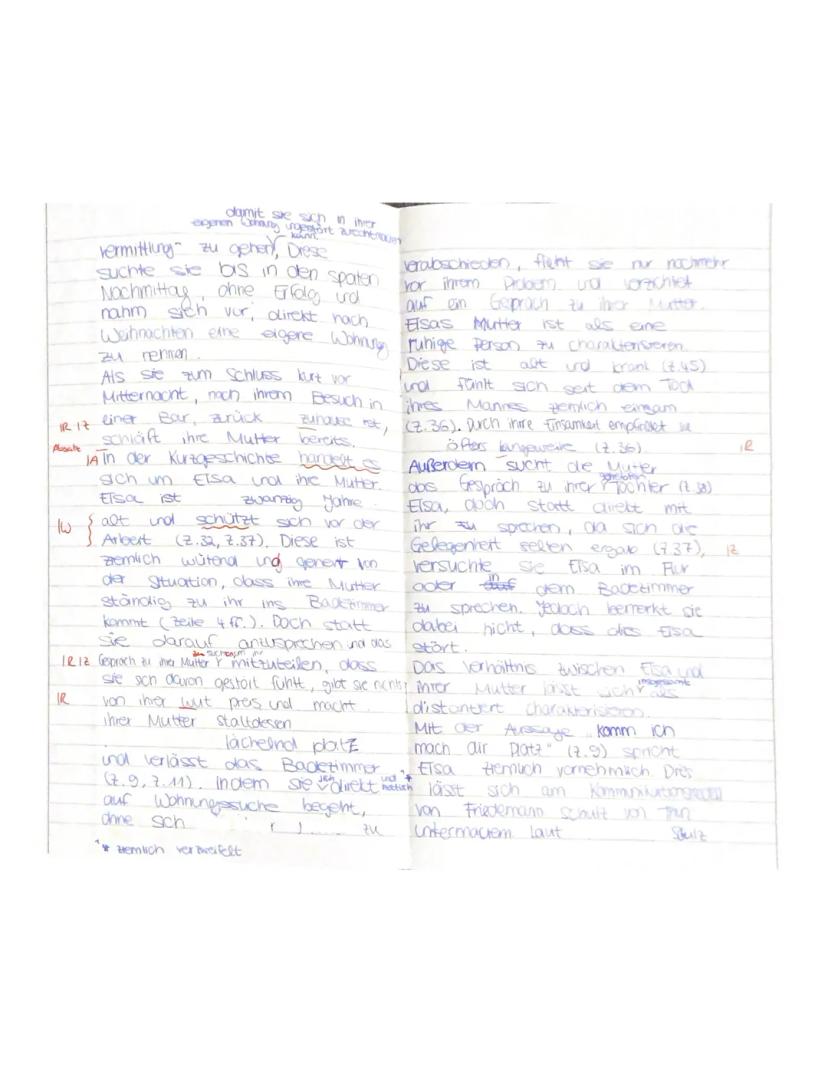 damit sie sich in ihrer
eigenen Wohnung ungestört zurechtmachen
kann
vermittlung" zu gehen, Diese
suchte sie bis in den späten
Nachmittag, ohne Erfolg und
nahm sich vor, direkt nach
Weihnachten eine eigene Wohnung
zu
Als sie zum Schluss kurz vor
Mitternacht, nach ihrem Besuch in
IR IZ einer Bar, zurück zuhause ist,
Absatz schläft ihre Mutter bereits.
IA In der Kurzgeschichte handelt es
sich um Elsa und ihre Mutter.
Elsa ist zwanzig Jahre
IW alt und schützt sich vor der
Arbeit (Z.32, Z.37). Diese ist
ziemlich wütend und genervt von
der Situation, dass ihre Mutter
ständig zu ihr ins Badezimmer
kommt (Zeile 4 ff.). Doch statt
sie darauf anzusprechen und das
IR IZ Gespräch zu ihrer Mutter mitzuteilen, dass
sie sich davon gestört fühlt, gibt sie nichts
IR von ihrer Wut preis und macht
ihrer Mutter stattdesen
lächelnd platz
und verlässt das Badezimmer
(Z.9, Z.11). Indem sie sich direkt und *
auf Wohnungssuche begeht,
ohne sich zu
* ziemlich verzweifelt
verabschieden, flieht sie nur nochmehr
vor ihrem Problem und verzichtet
auf ein Gespräch zu ihrer Mutter.
Elsas Mutter ist als eine
ruhige Person zu charakterisieren.
Diese ist alt und krank (Z.45)
und fühlt sich seit dem Tod
ihres Mannes ziemlich einsam
(Z.36). Durch ihre Einsamkeit empfindet sie
öfters langeweile (Z.36). IR
Außerdem sucht die Mutter
das Gespräch zu ihrer Tochter (Z.38)
Elsa, doch statt direkt mit
ihr zu sprechen, da sich die
Gelegenheit selten ergab (Z.37), IZ
versuchte sie Elsa im Flur
oder in dem Badezimmer
zu sprechen. Jedoch bemerkt sie
dabei nicht, dass dies Elsa
stört.
Das Verhältnis zwischen Elsa und
ihrer Mutter lässt sich insgesamt als
distantiert charakterisieren.
Mit der Aussage „Komm ich
mach dir Platz" (Z.9) spricht
Elsa ziemlich vornehmlich. Dies
lässt sich am Kommunikationsmodell
von Friedemann Schult von Thun
untermauern. Laut Schulz